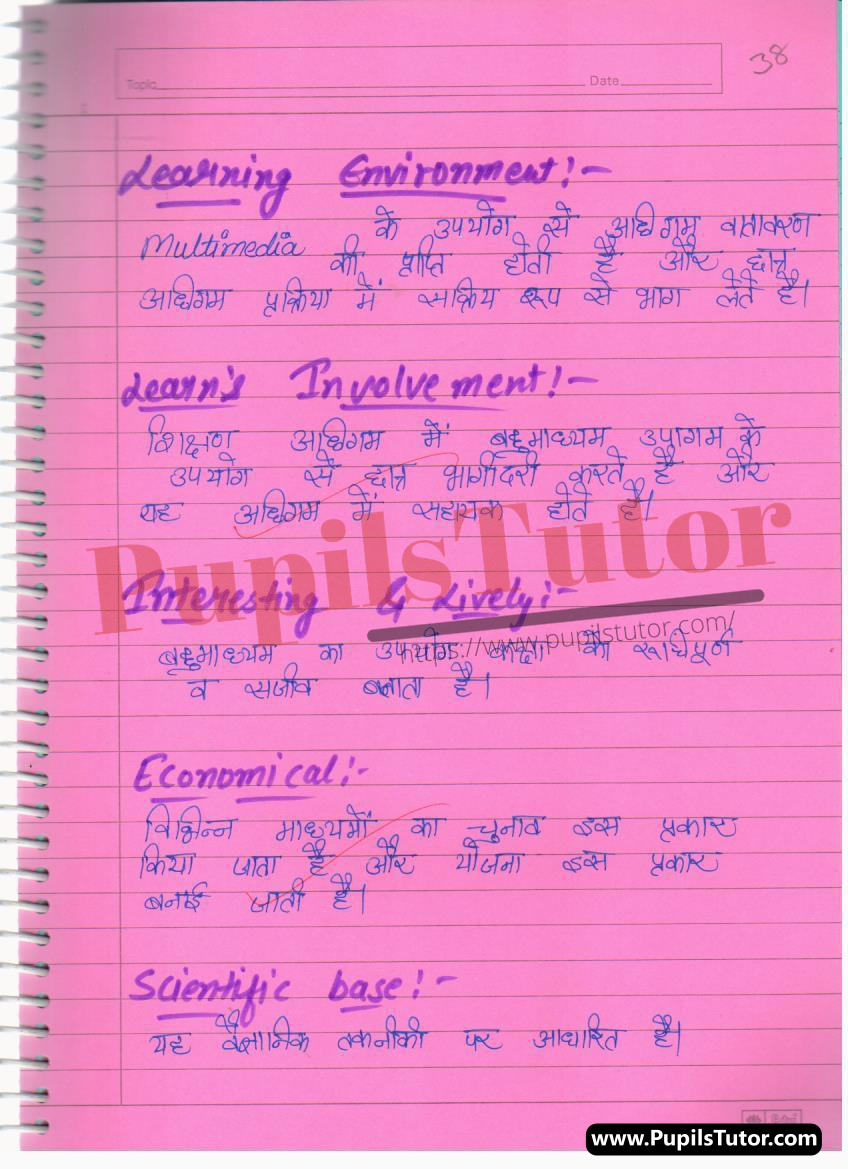 38
Topic Date
Learning Environment:-
Multimedia के उपयोग से अधिगम वातावरण
की प्राप्ति होती है और छात्र
अधिगम प्रक्रिया में सक्रिय रूप से भाग लेते है।
Learn's Involvement:-
शिक्षण अधिगम में बहुमाध्यम उपागम के
उपयोग से छात्र भागीदरी करते है और
यह अधिगम में सहायक होते है।
PupilsTutor
Interesting & Lively:-
https://www.pupilstutor.com/
बहुमाध्यम का उपयोग कक्षा को रूचिपूर्ण
व सजीव बनाता है।
Economical:-
विभिन्न माध्यमों का चुनाव इस प्रकार
किया जाता है और योजना इस प्रकार
बनाई जाती है।
Scientific base:-
यह वैज्ञानिक तकनीकी पर आधारित है।
www.PupilsTutor.com